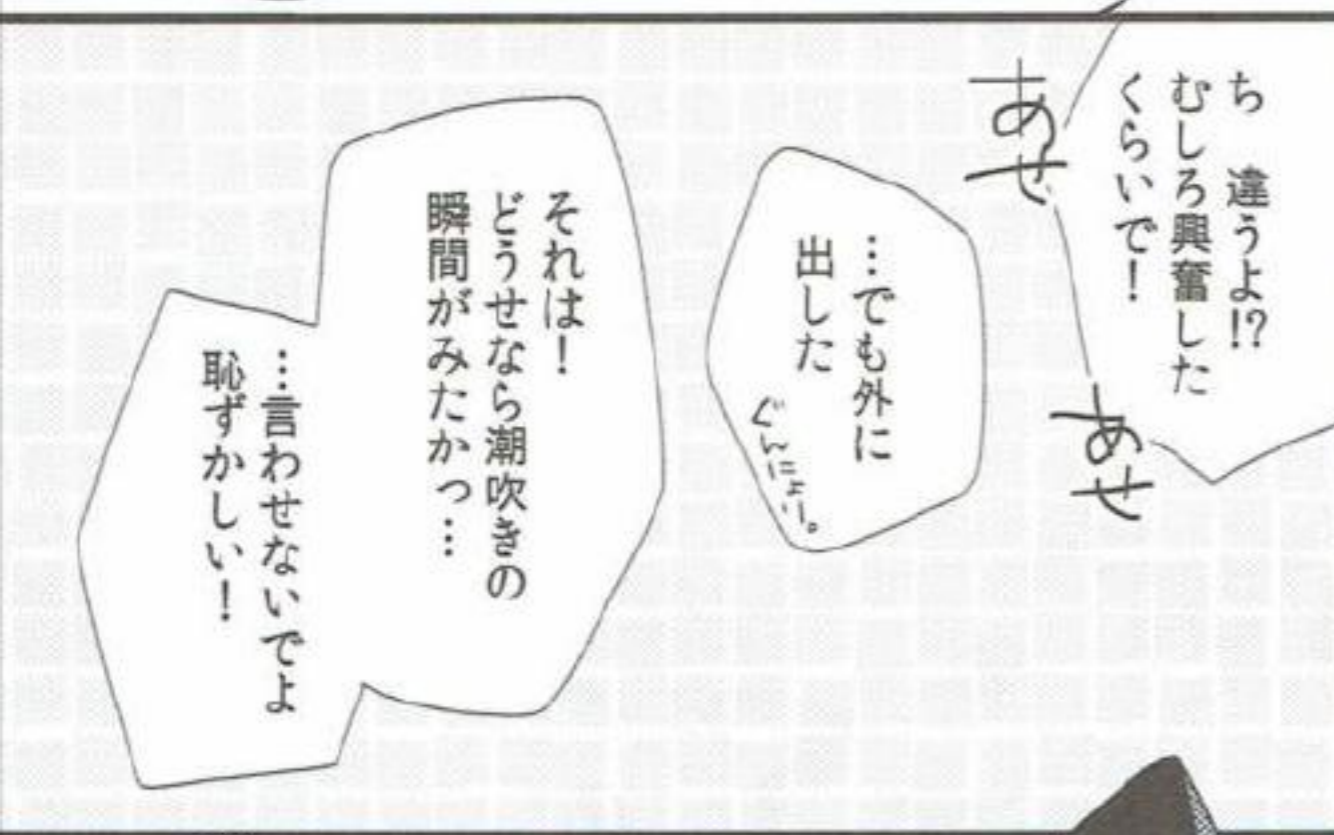 ち 違うよ!?
むしろ興奮した
くらいで!
あせ
あせ
…でも外に
出した
ぐんにょり。
それは!
どうせなら潮吹きの
瞬間がみたかっ…
…言わせないでよ
恥ずかしい!